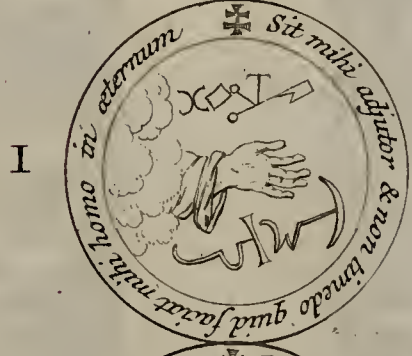 I
Sit mihi adjutor & non timedo quid faciat mihi homo in æternum